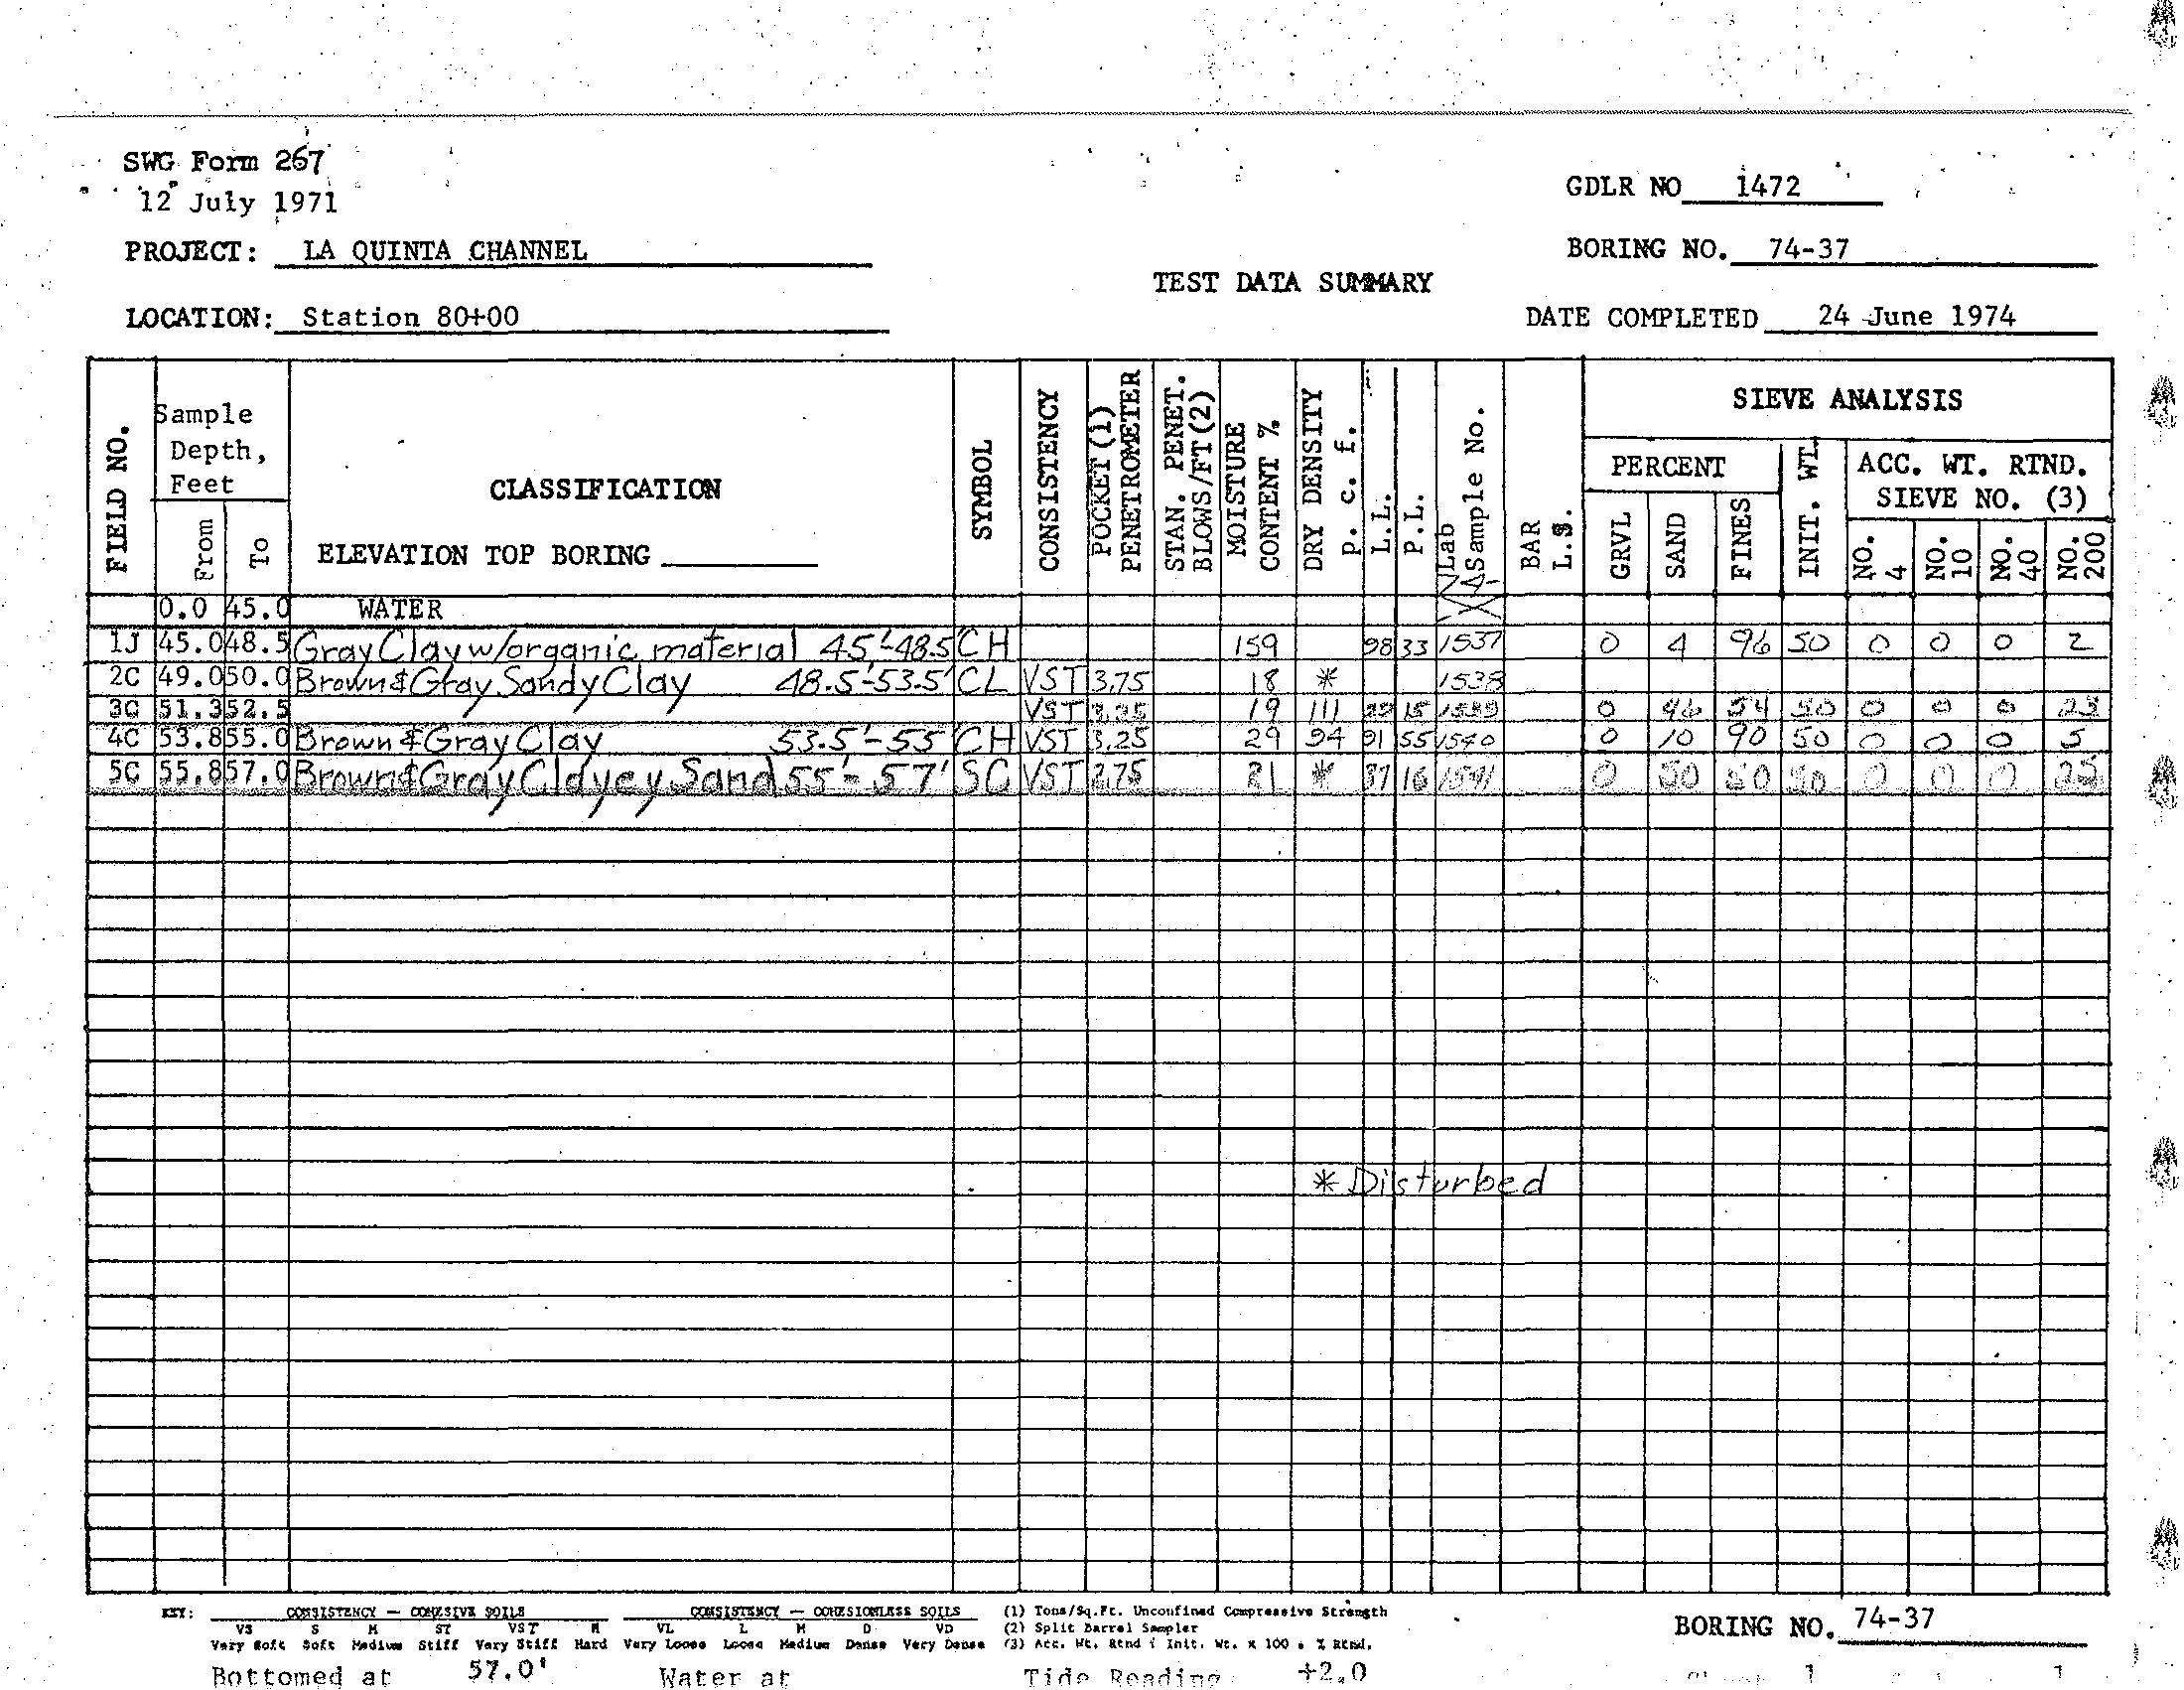 SWG Form 267
12 July 1971
GDLR NO 1472
PROJECT: LA QUINTA CHANNEL
BORING NO. 74-37
TEST DATA SUMMARY
LOCATION: Station 80+00
DATE COMPLETED 24 June 1974
FIELD NO.
Sample Depth, Feet
From
To
CLASSIFICATION
ELEVATION TOP BORING
SYMBOL
CONSISTENCY
POCKET (1) PENETROMETER
STAN. PENET. BLOWS/FT (2)
MOISTURE CONTENT %
DRY DENSITY p. c. f.
L.L.
P.L.
Lab Sample No.
74-
BAR L.S.
SIEVE ANALYSIS
PERCENT
GRVL
SAND
FINES
INIT. WT.
ACC. WT. RTND. SIEVE NO. (3)
NO. 4
NO. 10
NO. 40
NO. 200
0.0 45.0 WATER
1J 45.0 48.5 Gray Clay w/organic material 45'-48.5' CH 159 98 33 1537 0 4 96 50 0 0 0 2
2C 49.0 50.0 Brown & Gray Sandy Clay 48.5'-53.5' CL VST 3.75 18 * 1538
3C 51.3 52.5 VST 3.25 19 111 15 1539 0 46 54 50 0 0 0 23
4C 53.8 55.0 Brown & Gray Clay 53.5'-55' CH VST 3.25 29 94 91 55 1540 0 10 90 50 0 0 0 5
5C 55.8 57.0 Brown & Gray Clayey Sand 55'-57' SC VST 2.75 21 * 37 16 1541 0 50 50 50 0 0 0 25
* Disturbed
KEY: CONSISTENCY — COHESIVE SOILS CONSISTENCY — COHESIONLESS SOILS (1) Tons/Sq.Ft. Unconfined Compressive Strength
VS S M ST VST H VL L M D VD (2) Split Barrel Sampler
Very Soft Soft Medium Stiff Very Stiff Hard Very Loose Loose Medium Dense Very Dense (3) Acc. Wt. Rtnd ÷ Init. Wt. x 100 = % Rtnd.
BORING NO. 74-37
Bottomed at 57.0' Water at Tide Reading +2.0 1 1